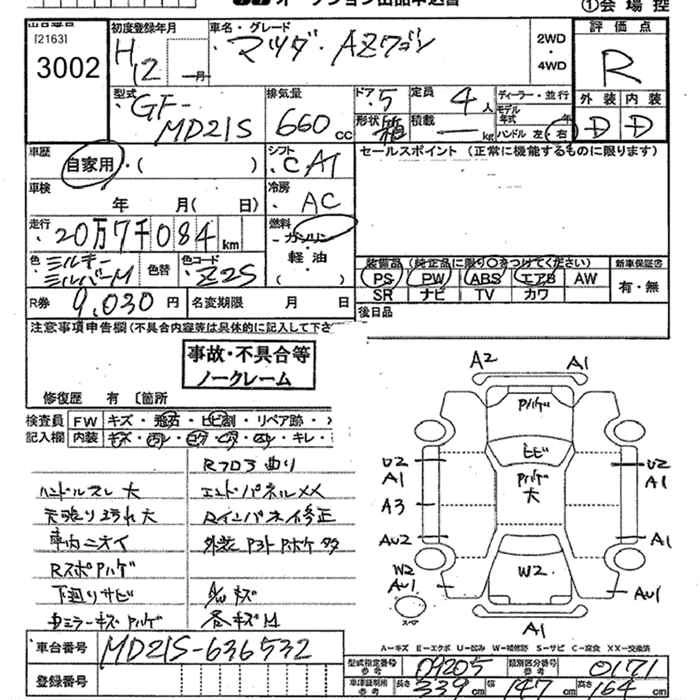 オークション出品申込書
①会場控
[2163]
3002
初度登録年月
H12 年 月
車名・グレード
マツダ・AZワゴン
2WD
・
4WD
評価点
R
型式
GF-
MD21S
排気量
660 cc
ドア
5
定員
4人
形状
箱
積載
— kg
ディーラー・並行
モデル
年式 年
ハンドル 左・右
外装 内装
D D
車歴
自家用・( )
シフト
CAT
セールスポイント (正常に機能するものに限ります)
車検
年 月( 日)
冷房
AC
走行
20万7千084 km
燃料
ガソリン
軽油
( )
色
ミルキー
シルバーM
色替
色コード
Z2S
装備品(純正品に限り○をつけてください)
PS PW ABS エアB AW
SR ナビ TV カワ
新車保証書
有・無
R券 9,030 円
名変期限 月 日
後日品
注意事項申告欄(不具合内容等は具体的に記入して下さ
事故・不具合等
ノークレーム
修復歴 有 〔箇所
検査員 FW キズ・飛石・ヒビ割・リペア跡・
記入欄 内装 キズ・
・キレ・
Rフロア曲り
ハンドルスレ大
エンドパネルXX
天張り汚れ大
Rインパネイ修正
車内ニオイ
RスポPハゲ
下廻りサビ
A/Wキズ
各キズM
A2
A1
Pハゲ
ヒビ
Pハゲ
大
U2
A1
A3
AU2
W2
AU1
スペア
U2
A1
A1
AU1
W2
A1
A—キズ E—エクボ U—凹み W—補修跡 S—サビ C—腐食 XX—交換済
車台番号 MD21S-636532
登録番号
型式指定番号
参考
09205
類別区分番号
参考
0171
車庫証明用
参考
長さ 339cm 幅 147cm 高さ 164cm